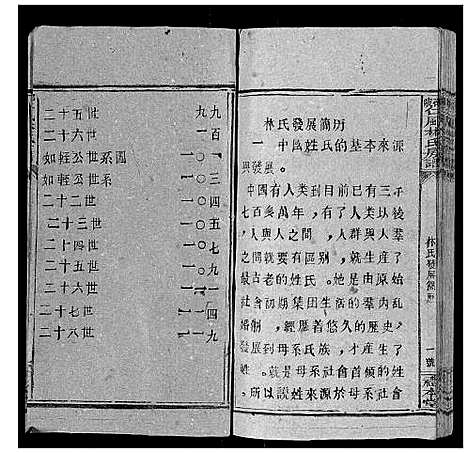 林氏發展簡歷
一 中國姓氏的基本來源
與發展。
中國有人类到目前已有三千
七百多萬年，有了人类以後
，人與人之間，人群與人羣
之間就要有區别，就生産了
最古老的姓氏。她是由原始
社會初期集团生活的羣内乱
婚制，經歷着悠久的歷史，
發展到母系氏族，才産生了
姓。就是母系社會首領的姓
。所以説姓來源於母系社會
林氏發展簡歷
一號
二十五世 九九
二十六世 九百
如輊公世系圖
如輊公世系
二十二世
二十三世
二十四世
二十五世
二十六世
二十七世
二十八世